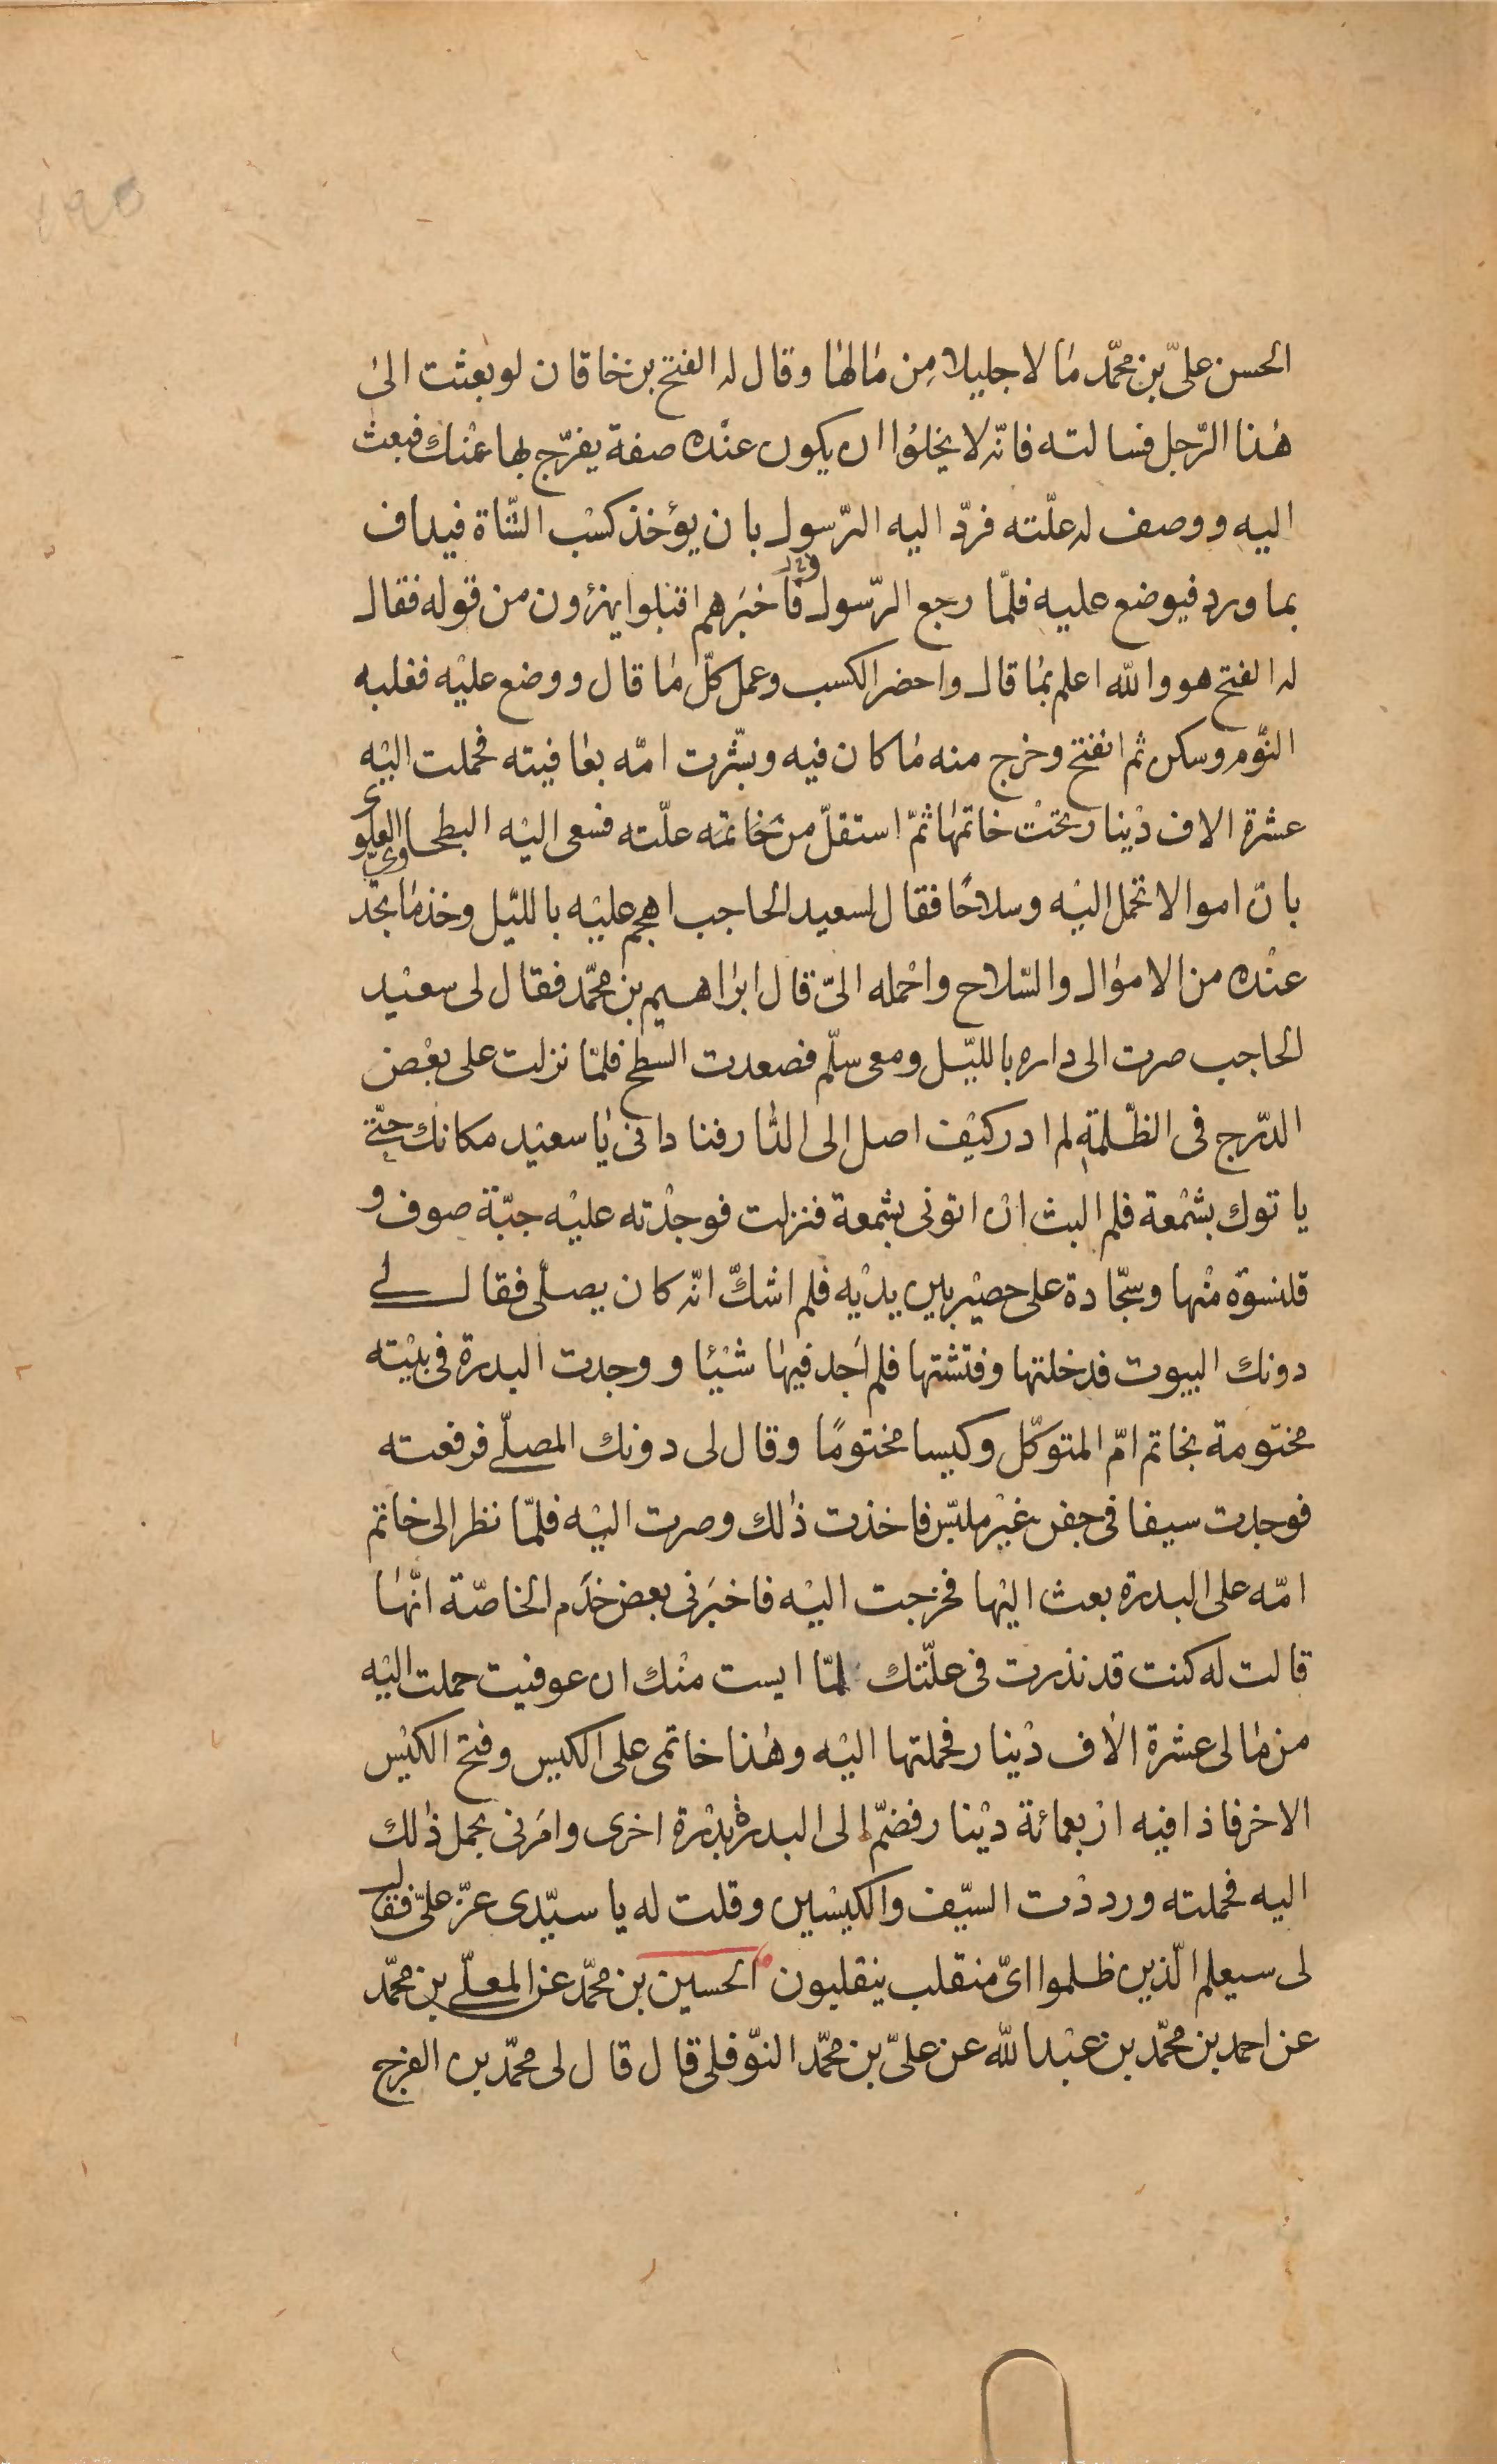 الحسن علىّ بن محمّد مٰا لا جليلا مِن مٰالهٰا وقال له الفتح بن خاقان لو بعثت الىٰ
هٰذا الرّجل فسالته فانّه لا يخلوُا ان يكون عنْده صفة يفرّج بها عنْك فبعث
اليه ووصف له علّته فردّ اليه الرّسول بان يؤخذ كسْب الشّاة فيداف
بماورد فيوضع عليه فلمّا رجع الرّسول فاخبَرهم اقبلوا يهزؤن من قوله فقال
له الفتح هو والله اعلم بمٰا قال واحضر الكسب وعمل كلّ مٰا قال ووضع عليْه فغلبه
النّوم وسكن ثم انفتح وخرج منه مٰا كان فيه وبشّرت امّه بعٰافيته فحملت اليْه
عشرة الاف دْينار تحْت خاتمهٰا ثمّ استقلّ من علّته فسعى اليْه البطحاوى العلوى
بانّ اموالا تحمل اليْه وسلاحًا فقال لسعيد الحاجب اهجم عليْه بالليّل وخذ مٰا تجد
عنْده من الامؤال والسّلاح واحْمله الىّ قال ابرٰاهيم بن محمّد فقال لى سعيْد
الحاجب صرت الى داره بالليّل ومعى سلّم فصعدت السطح فلمّا نزلت على بعْض
الدّرج فى الظّلمة لم ادر كيْف اصل الى الدّار فنادانى يٰا سعيْد مكانك حتّے
ياتوك بشمْعة فلم البث ان اتونى بشمعة فنزلت فوجدْته عليْه جبّة صوف و
قلنسوة منْها وسجّادة على حصيْر بين يديْه فلم اشكّ انّه كان يصلّى فقال لے
دونك البيوت فدخلتها وفتشتها فلم اَجد فيهٰا شيْئا ووجدت البدرة فى بيْته
مختومة بخاتم امّ المتوكّل وكيسا مختومًا وقال لى دونك المصلّے فرفعته
فوجدت سيفا فى جفن غيْر ملبّس فاخذت ذٰلك وصرت اليْه فلمّا نظر الى خاتم
امّه على البدرة بعث اليْها فخرجت اليْه فاخبَرنى بعض خدَم الخاصّة انّهٰا
قالت له كنت قد نذرت فى علّتك لمّا ايست منْك ان عوفيت حملت اليْه
من مٰالى عشرة الٰاف دْينار فحملتها اليْه وهٰذا خاتمى على الكيس وفتح الكيْس
الاخر فاذا فيه ارْبعمائة ديْنار فضمّ الى البدرة بدْرة اخرى وامَرنى بحمل ذٰلك
اليه فحملته ورددْت السيّف والكيْسين وقلت له يا سيّدى عزّ علىّ فقال
لى سيعلم الّذين ظلموا اىّ منقلب ينقلبون الحسين بن محمّد عن المعلّے بن محمّد
عن احمد بن محمّد بن عبْد الله عن علىّ بن محمّد النّوفلى قال قال لى محمّد بن الفرج